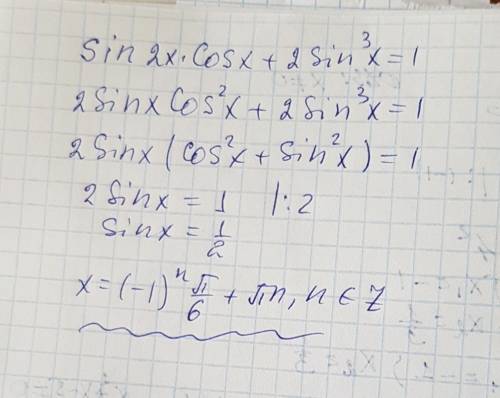 sin 2x · cosx + 2 sin³x = 1
2 sinx cos²x + 2 sin³x = 1
2 sinx (cos²x + sin²x) = 1
2 sinx = 1 | : 2
sinx = 1/2
x = (-1)ⁿ π/6 + πn, n ∈ Z